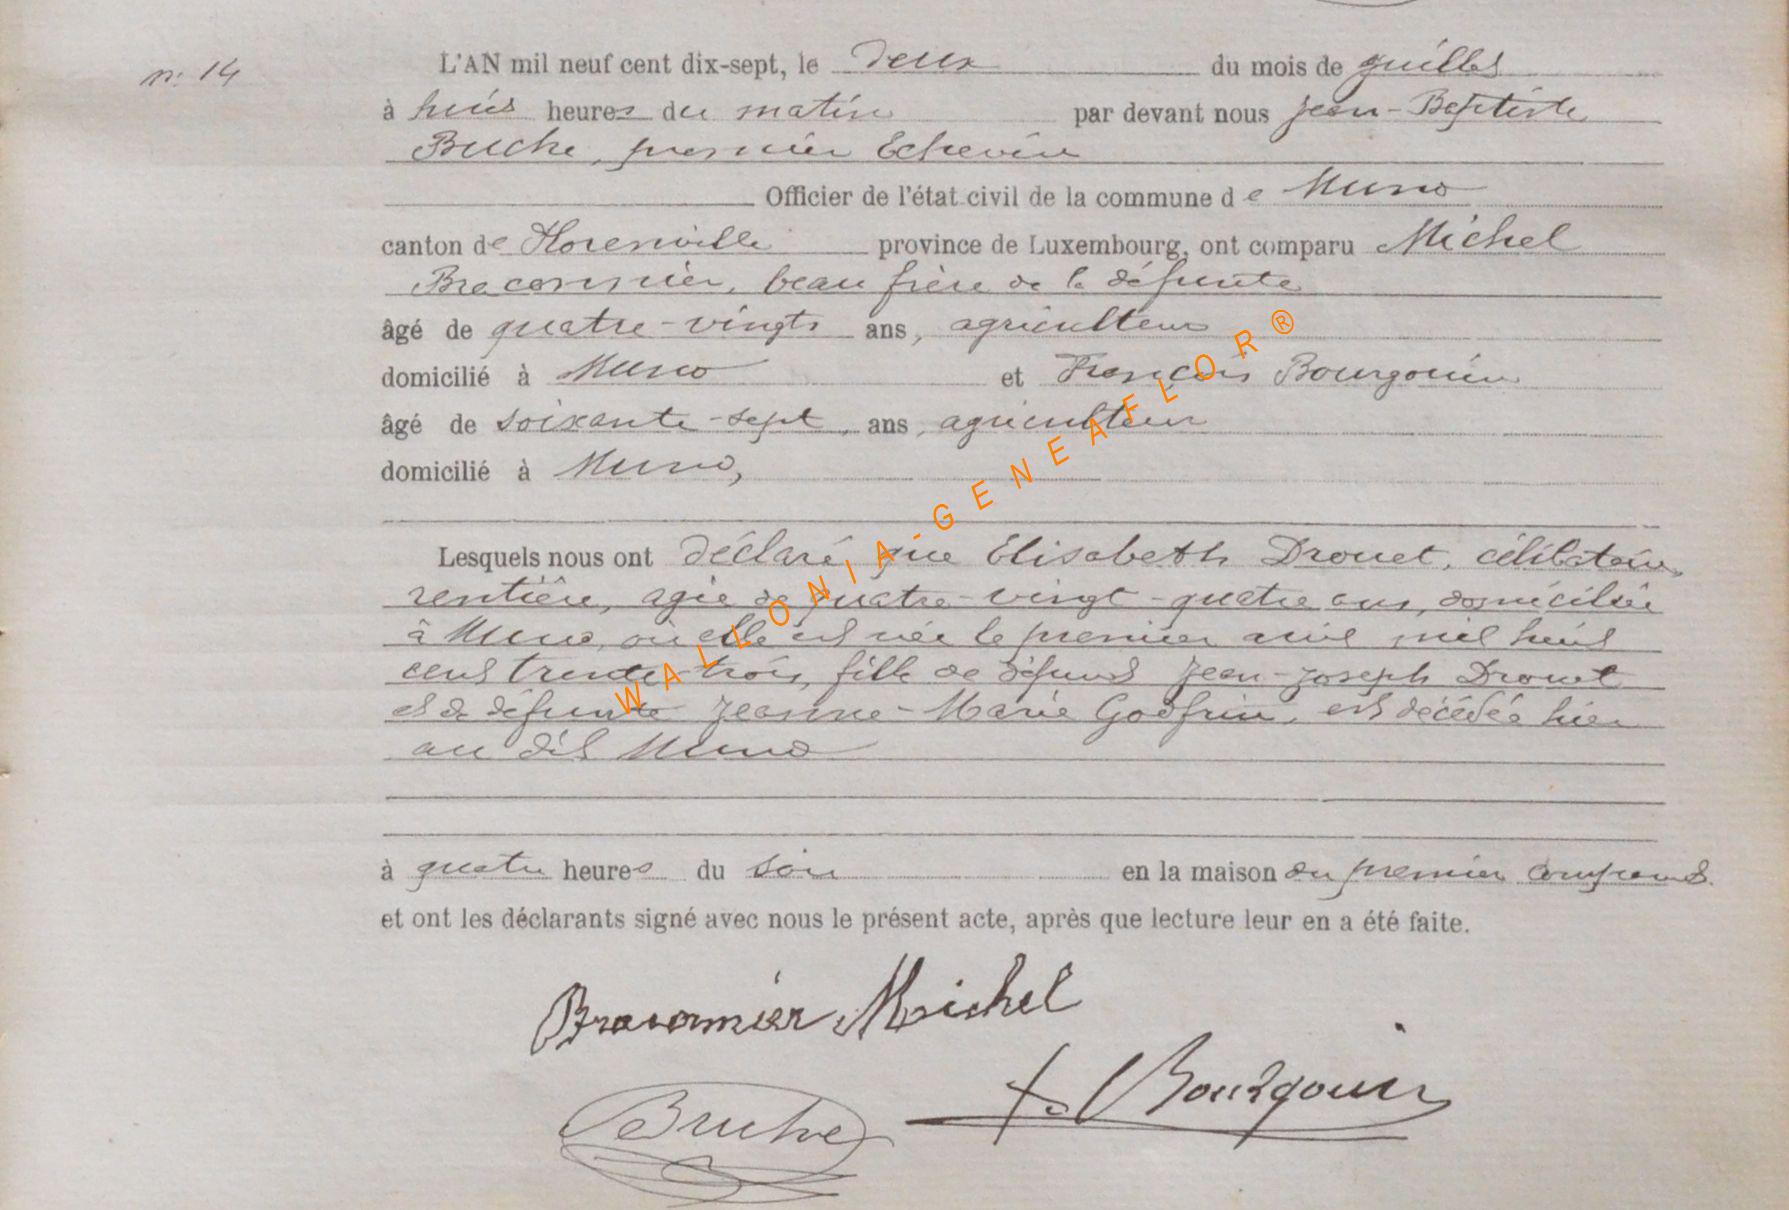 n: 14
L'AN mil neuf cent dix-sept, le deux du mois de juillet
à huit heures du matin par devant nous Jean-Baptiste
Buche, premier Echevin
Officier de l'état civil de la commune de Muno
canton de Florenville province de Luxembourg, ont comparu Michel
Braconnier, beau frère de la défunte
âgé de quatre-vingts ans, agriculteur
domicilié à Muno et François Bourgouin
âgé de soixante-sept ans, agriculteur
domicilié à Muno,
Lesquels nous ont déclaré que Elisabeth Drouet, célibataire,
rentière, agée de quatre-vingt-quatre ans, domiciliée
à Muno, où elle est née le premier avril mil huit
cent trente-trois, fille de défunt Jean-Joseph Drouet
et de défunte Jeanne-Marie Godfrin, est décédée hier
au dit Muno
à quatre heures du soir en la maison du premier comparant.
et ont les déclarants signé avec nous le présent acte, après que lecture leur en a été faite.
Braconnier Michel
f. Bourgouin
Buche
WALLONIA-GENEAFLOR®